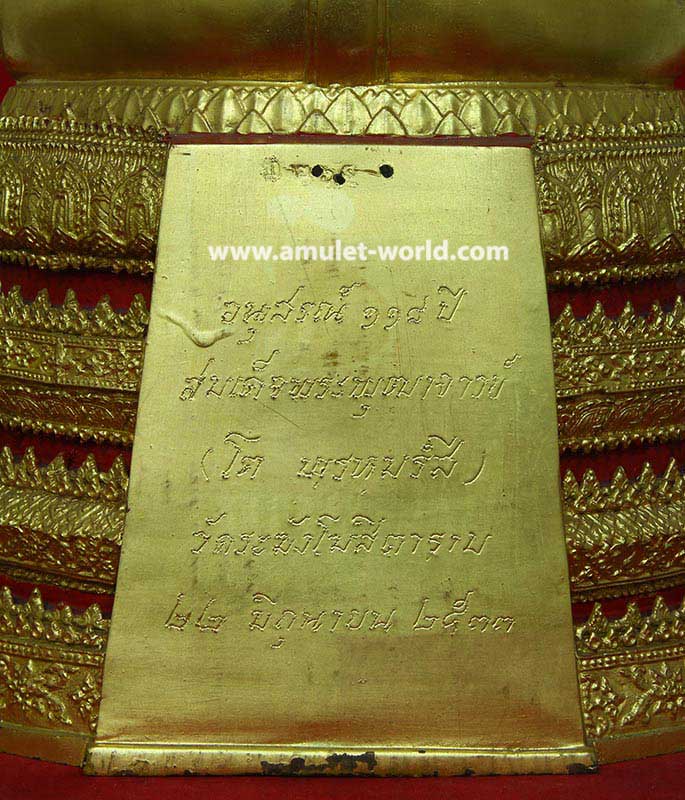 www.amulet-world.com
อนุสรณ์ ๑๑๘ ปี
สมเด็จพระพุฒาจารย์
(โต พฺรหฺมรํสี)
วัดระฆังโฆสิตาราม
๒๒ มิถุนายน ๒๕๓๓